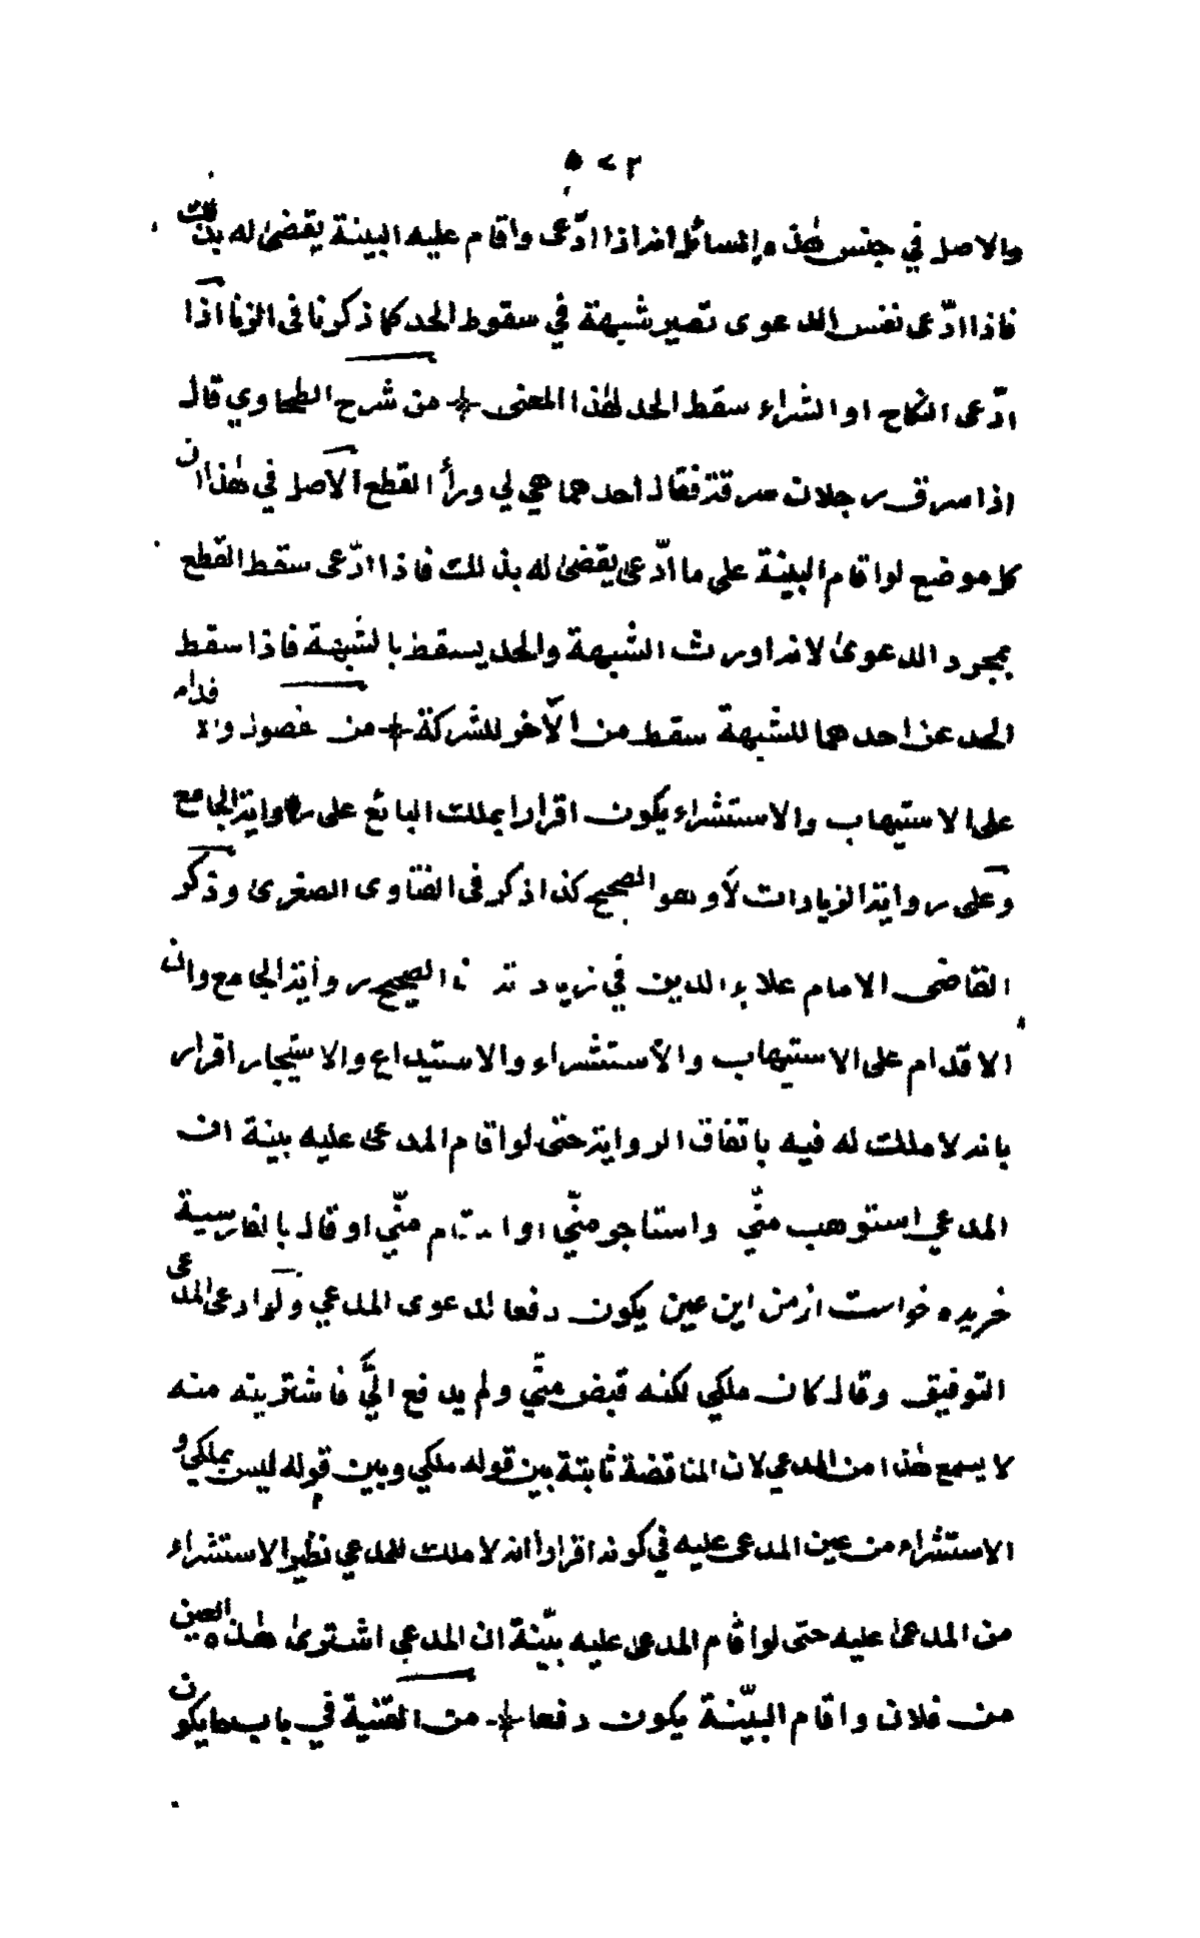 ٥٧٢
والاصل في جنس هذه المسائل انه اذا ادّعى واقام عليه البينة يقضىٰ له بذلك
فاذا ادّعى نفس الدعوى تصير شبهة في سقوط الحد كما ذكرنا فى الزنا اذا
ادّعى النكاح او الشراء سقط الحد لهٰذا المعنى من شرح الطحاوي قال
اذا سرق رجلان سرقة فقال احدهما هي لي ورأ القطع الاصل في هٰذا ان
كل موضع لو اقام البينة على ما ادّعى يقضىٰ له بذلك فاذا ادّعى سقط القطع
بمجرد الدعوىٰ لانه اورث الشبهة والحد يسقط بالشبهة فاذا سقط
الحد عن احدهما للشبهة سقط من الآخر للشركة من فصول
على الاستيهاب والاستشراء يكون اقرارا بملك البائع على رواية الجامع
وعلى رواية الزيادات لا وهو الصحيح كذا ذكر فى الفتاوى الصغرىٰ وذكر
القاضى الامام علاء الدين في الصحيح رواية الجامع وان
الاقدام على الاستيهاب والاستشراء والاستيداع والاستيجار اقرار
بانه لا ملك له فيه باتفاق الرواية حتى لو اقام المدعىٰ عليه بينة ان
المدعي استوهب منّي واستاجر منّي او منّي او قال بالفارسية
خريده خواست ازمن اين عين يكون دفعا لدعوى المدعي ولو ادعى المدعى
التوفيق وقال كان ملكي لكنه قبض منّي ولم يدفع اليَّ فاشتريته منه
لا يسمع هٰذا من المدعي لان المناقضة ثابتة بين قوله ملكي وبين قوله ليس بملكي و
الاستشراء من عين المدعى عليه في كونه اقرارا انه لا ملك للمدعي نظير الاستشراء
من المدعىٰ عليه حتى لو اقام المدعى عليه بيّنة ان المدعي اشترىٰ هٰذه العين
من فلان واقام البيّنة يكون دفعا من القنية في باب ما يكون